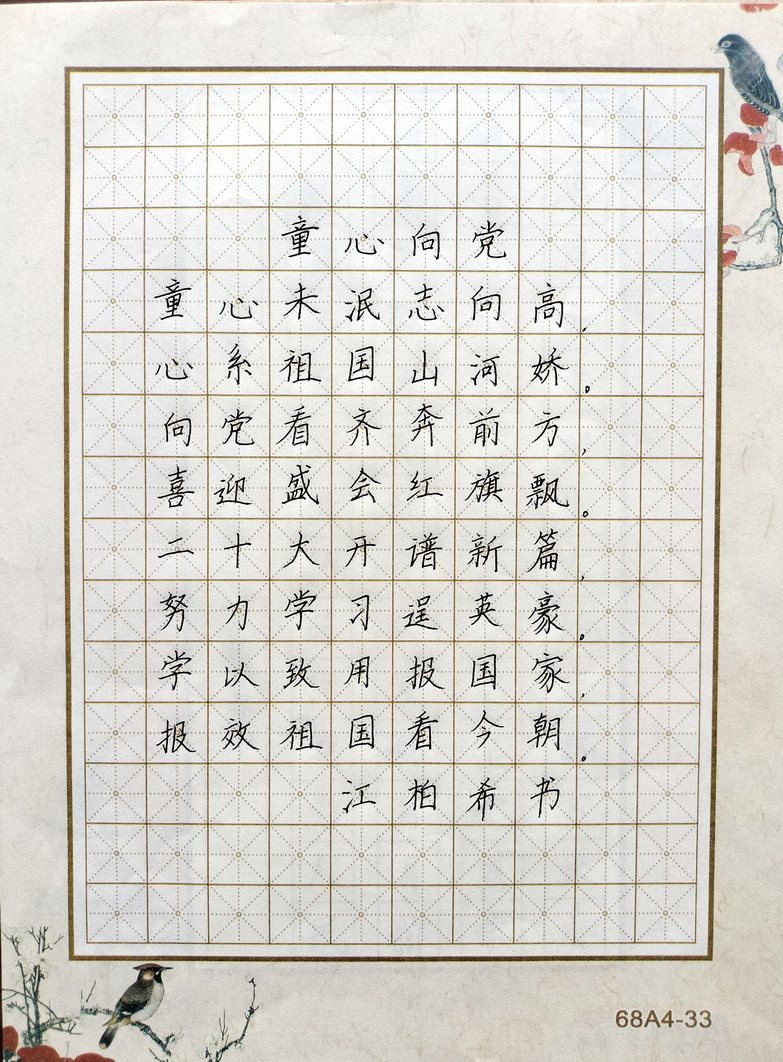 童心向党
童心未泯志向高，
心系祖国山河娇。
向党看齐奔前方，
喜迎盛会红旗飘。
二十大开谱新篇，
努力学习逞英豪。
学以致用报国家，
报效祖国看今朝。
江柏希书
68A4-33